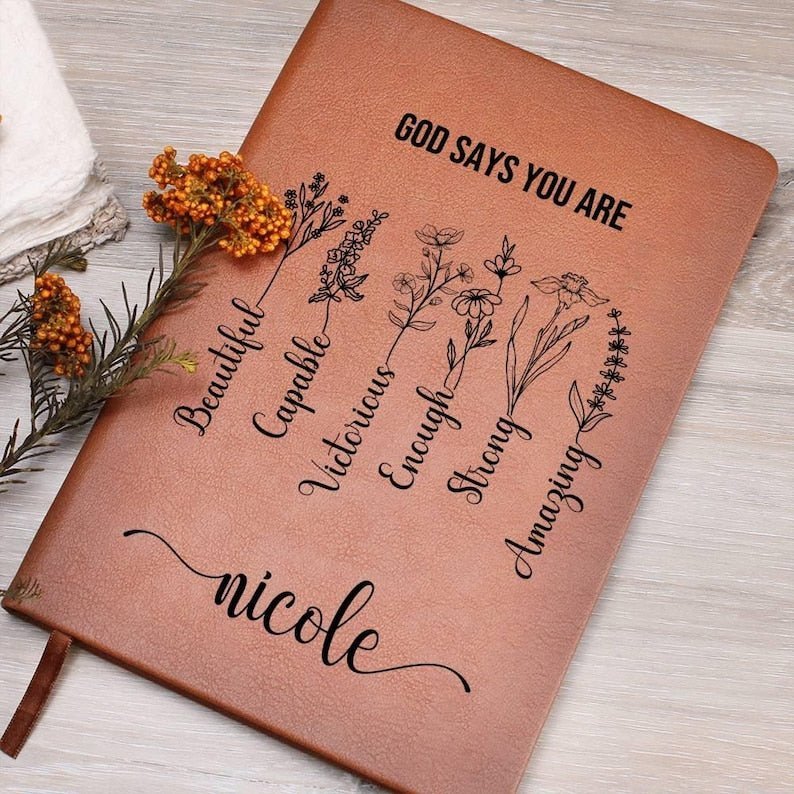 GOD SAYS YOU ARE
Beautiful
Capable
Victorious
Enough
Strong
Amazing
nicole